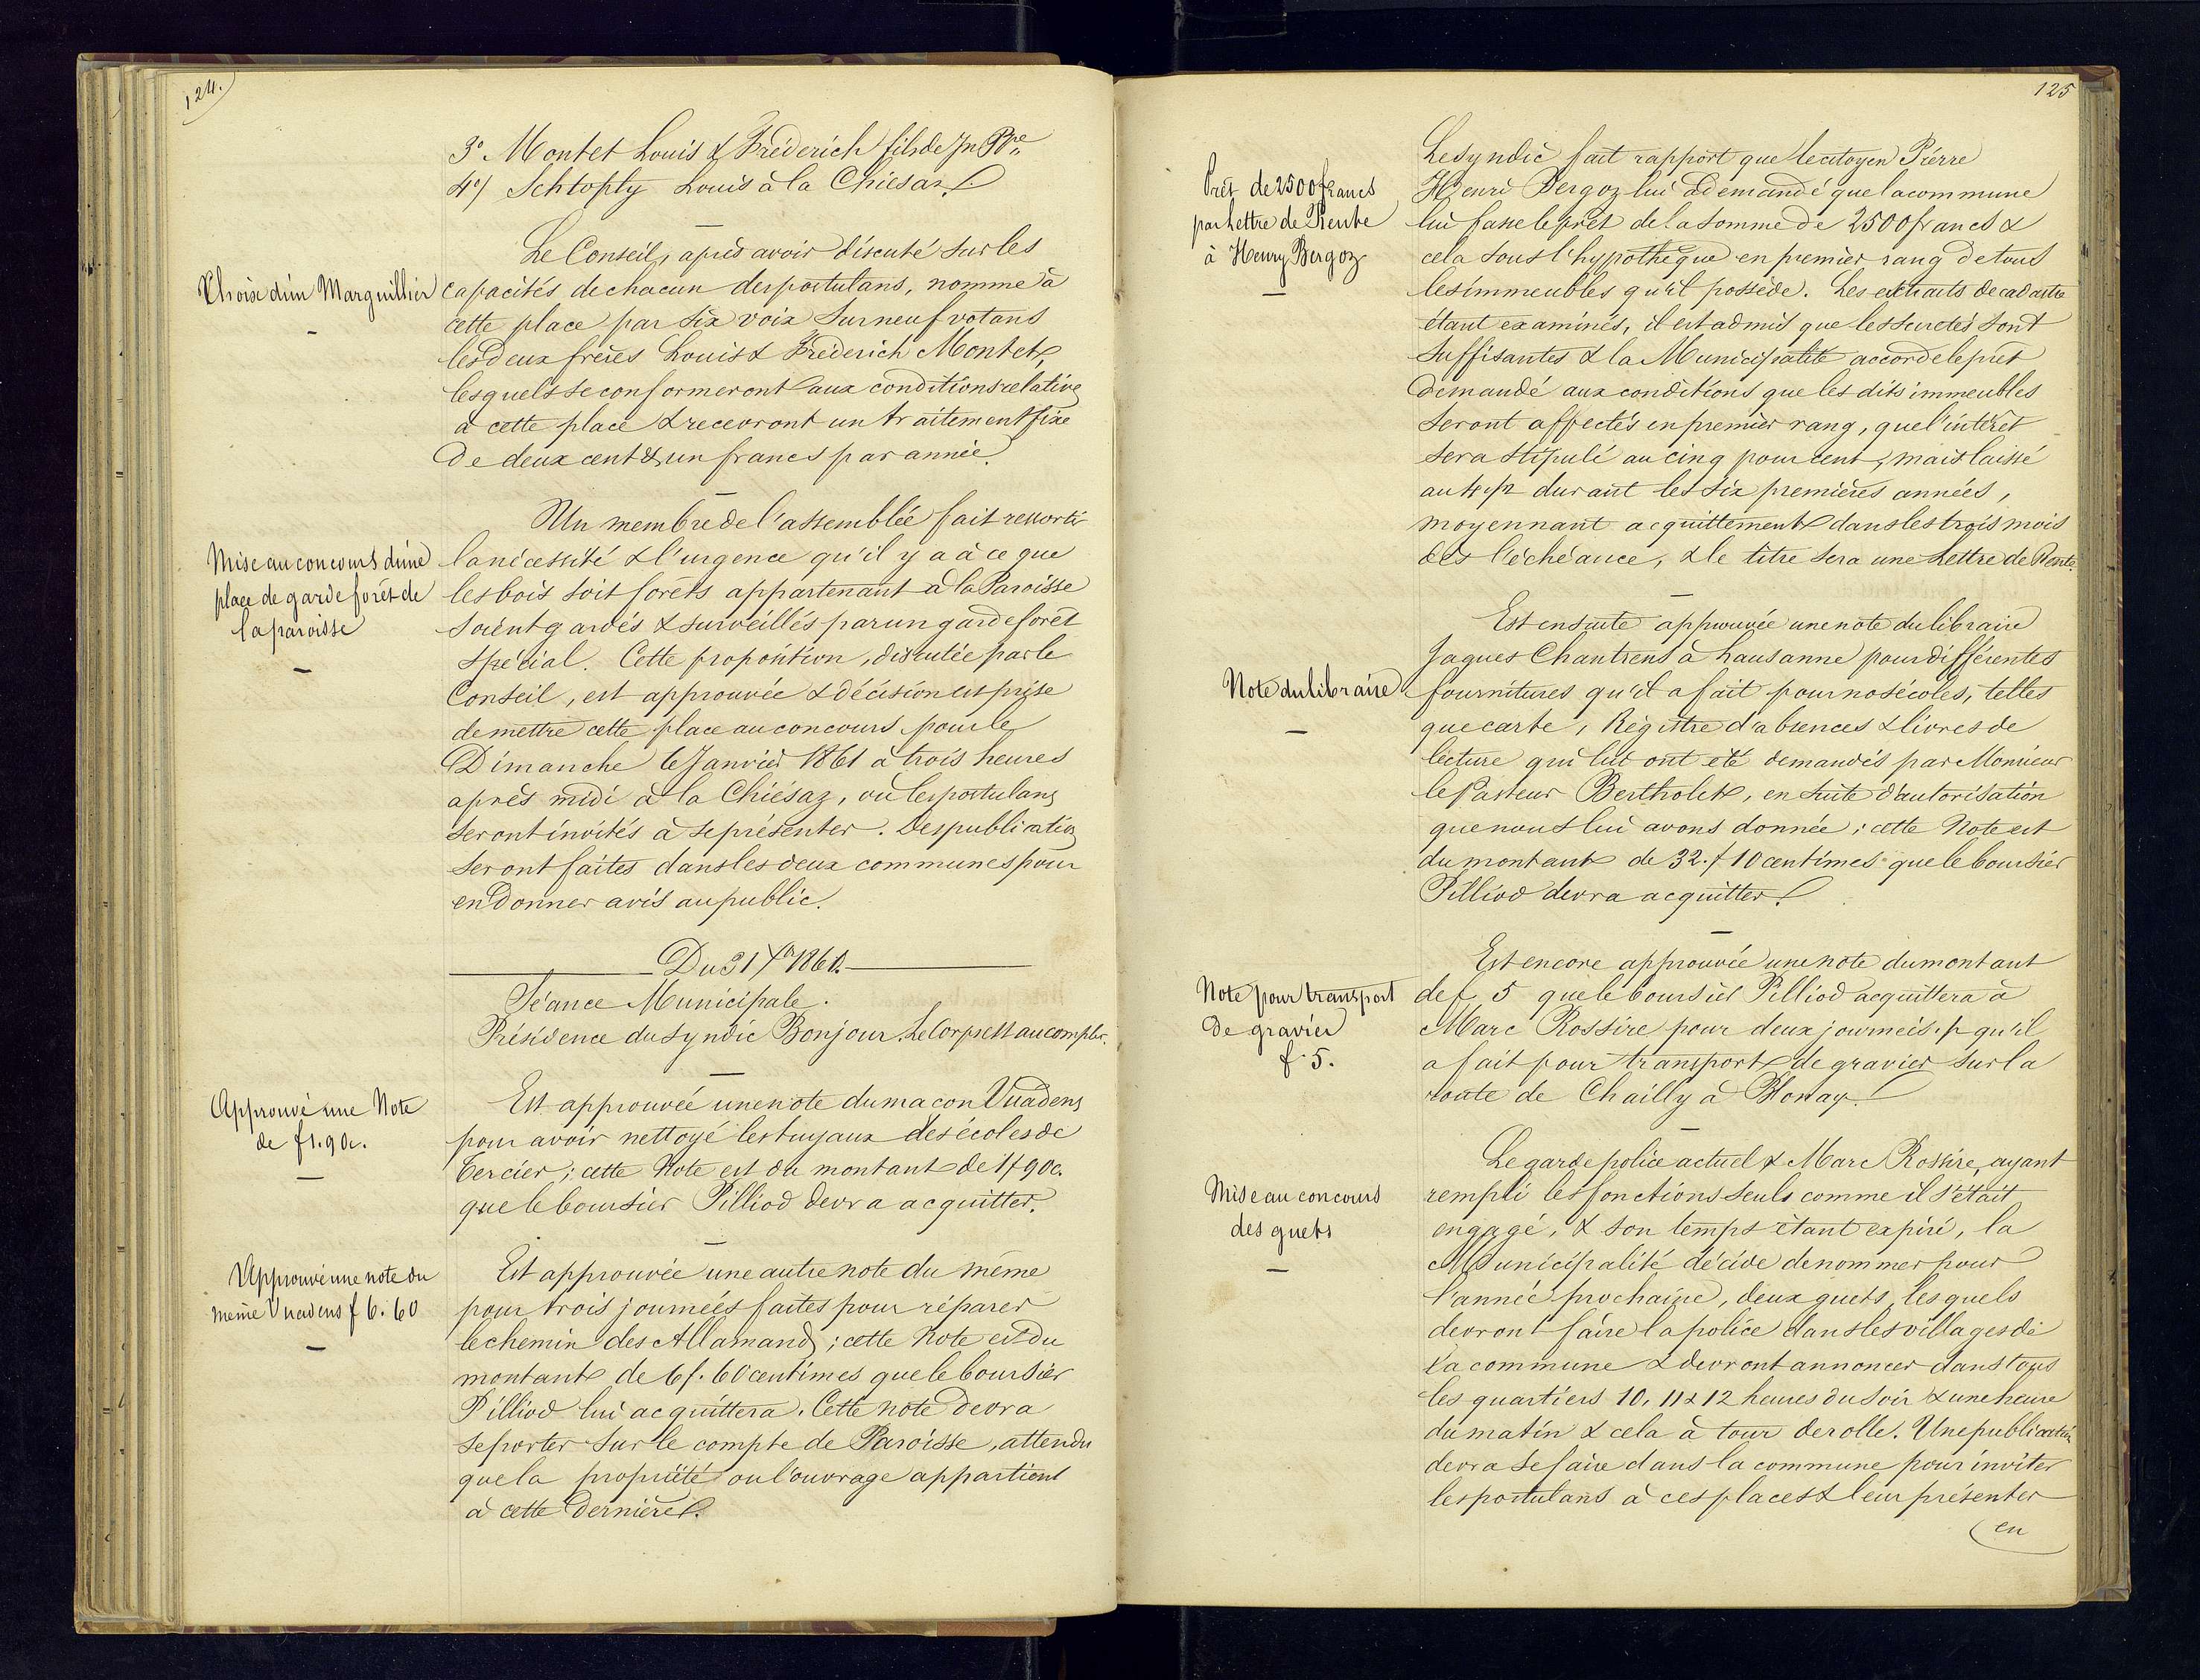 124.
3° Montet Louis & Fréderich fils de Jn Pre
4°/ Schtopty Louis à la Chiesaz.
Choix d'un Marguillier
Le Conseil, après avoir discuté sur les
capacités de chacun des postulans, nomme à
cette place par six voix sur neuf votans
les deux frères Louis & Fréderich Montet,
lesquels se conformeront aux conditions relatives
à cette place & recevront un traitement fixe
de deux cent & un francs par année.
Mise au concours d'une
place de garde forêt de
la paroisse
Un membre de l'assemblée fait ressortir
la nécessité & l'urgence qu'il y a à ce que
les bois soit forêts appartenant à la Paroisse
soient gardés & surveillés par un garde forêt
spécial. Cette proposition, discutée par le
Conseil, est approuvée & décision est prise
de mettre cette place au concours pour le
Dimanche 6 Janvier 1861 à trois heures
après midi à la Chiésaz, où les postulans
seront invités à se présenter. Des publications
seront faites dans les deux communes pour
en donner avis au public.
Du 31 Xbre 1860.
Séance Municipale.
Présidence du Syndic Bonjour. Le Corps est au complet.
Approuvé une Note
de f 1.90c.
Est approuvée une note du maçon Vuadens
pour avoir nettoyé les tuyaux des écoles de
Cercier; cette Note est du montant de 1f 90c.
que le boursier Pilliod devra acquitter.
Approuvé une note du
même Vuadens f 6.60
Est approuvée une autre note du même
pour trois journées faites pour réparer
le chemin des Allamands; cette Note est du
montant de 6f. 60 centimes que le boursier
Pilliod lui acquittera. Cette note devra
se porter sur le compte de Paroisse, attendu
que la propriété ou l'ouvrage appartient
à cette dernière.
125
Prêt de 2500 francs
par Lettre de Rente
à Henry Bergoz
Le syndic fait rapport que le citoyen Pierre
Henri Bergoz lui a demandé que la commune
lui fasse le prêt de la somme de 2500 francs &
cela sous l'hypothèque en premier rang de tous
les immeubles qu'il possède. Les extraits de cadastre
étant examinés, il est admis que les suretés sont
suffisantes & la Municipalité accorde le prêt
demandé aux conditions que les dits immeubles
seront affectés en premier rang, que l'intérêt
sera stipulé au cinq pour cent, mais laissé
au 4 1/2 durant les six premières années,
moyennant acquittement dans les trois mois
dès l'échéance, & le titre sera une Lettre de Rente.
Note du libraire
Est ensuite approuvée une note du libraire
Jaques Chantrens à Lausanne pour différentes
fournitures qu'il a fait pour nos écoles, telles
que carte, Régistre d'absences & livres de
lecture qui lui ont été demandés par Monsieur
le Pasteur Bertholet, en suite d'autorisation
que nous lui avons donnée; cette Note est
du montant de 32.f 10 centimes que le boursier
Pilliod devra acquitter.
Note pour transport
de gravier
f 5.
Est encore approuvée une note du montant
de f. 5 que le boursier Pilliod acquittera à
Marc Rossire pour deux journées 1/2 qu'il
a fait pour transport de gravier sur la
route de Chailly à Blonay.
Mise au concours
des guets
Le garde police actuel & Marc Rossire, ayant
rempli les fonctions seuls comme il s'était
engagé, & son temps étant expiré, la
Municipalité décide de nommer pour
l'année prochaine, deux guets, lesquels
devront faire la police dans les villages de
la commune & devront annoncer dans tous
les quartiers 10, 11 & 12 heures du soir & une heure
du matin & cela à tour de rolle. Une publication
devra se faire dans la commune pour inviter
les postulans à ces places & leur présenter
en